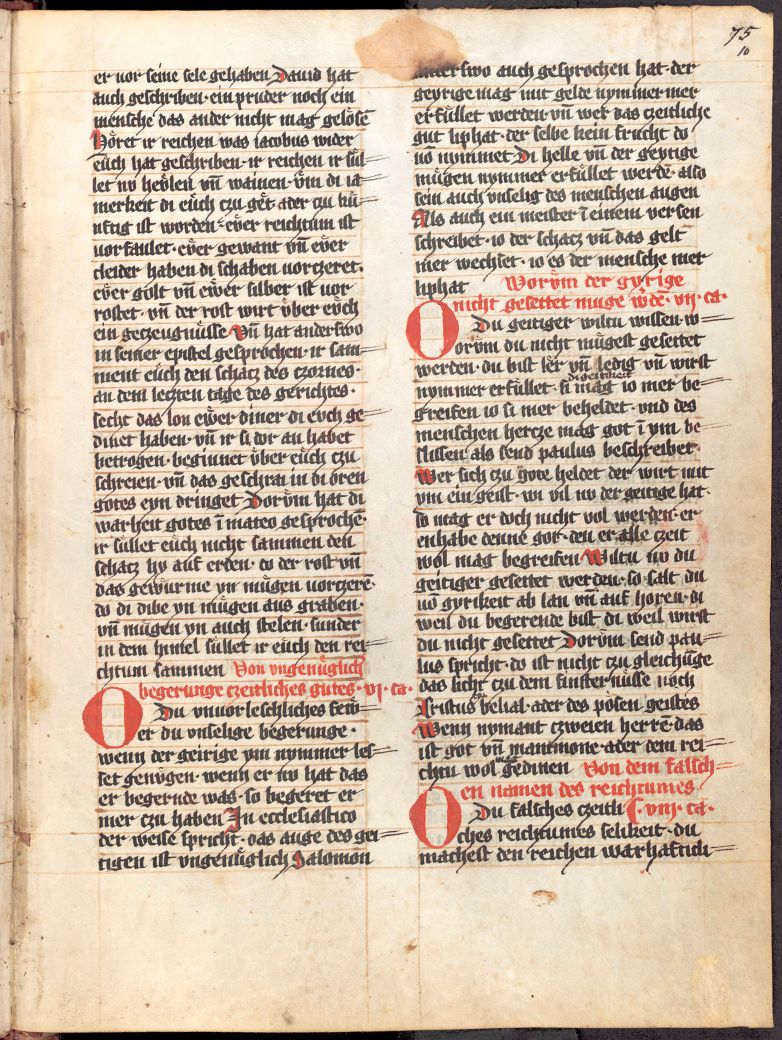 75
10
er vor seine sele gehaben David hat
auch geschriben · ein pruder noch ein
mensche das ander nicht mag gelösē
Höret ir reichen was iacobus wider
euch hat geschriben · ir reichen ir sul⸗
let nv heylen vn̄ wainen · vm di ia⸗
merkeit di euch czu get ader czu ku⸗
nftig ist worden · ewer reichtum ist
vorfaulet · ewer gewant vn̄ ewer
cleider haben di schaben vorczeret ·
ewer golt vn̄ ewer silber ist vor
rostet · vn̄ der rost wirt vber euch
ein geczeugnusse Vn̄ hat anderswo
in seiner epistel gesprochen · ir sam⸗
ment euch den schacz des czornes ·
an dem leczten tage des gerichtes ·
secht das lon ewer diner di euch ge⸗
dinet haben · vn̄ ir si dor an habet
betrogen · beginnet vber euch czu
schreien · vn̄ das geschrai in di oren
gotes eyn dringet Dorum hat di
warheit gotes ī mateo gesprochē ·
ir sullet euch nicht sammen den
schacz hy auf erden · do der rost vn̄
das gewurme yn mugen vorczerē ·
do di dibe yn mugen aus graben ·
vn̄ mugen yn auch stelen · sunder
in dem himel sullet ir euch den rei⸗
chtum sammen Von vngenuglich
begerunge czeitliches gutes · vi · ca ·
O Du vnuorleschliches few⸗
er du vnselige begerunge ·
wenn der geirige ym nymmer les⸗
set genugen · wenn er nv hat das
er begernde was · so begeret er
mer czu haben In ecclesiastico
der weise spricht · das auge des gei⸗
tigen ist vngenuglich Salomon
anderswo auch gesprochen hat · der
geyrige mag mit gelde nymmer mer
erfullet werden · vn̄ wer das czeitliche
gut liphat · der selbe kein frucht do
vō nymmet Di helle vn̄ der geytige
mugen nymmer erfullet werdē · also
sein auch vnselig des menschen augen
Als auch ein meister ī einem versen
schreibet · io der schacz vn̄ das gelt
mer wechset · io es der mensche mer
liphat Worum der gyrige
nicht gesettet muge w̄dē · vii · ca ·
O Du geitiger wiltu wissen · w⸗
orum du nicht mugest gesettet
werden · du bist ler vn̄ ledig vn̄ wirst
nymmer erfullet · si mag io mer be⸗
greifen io si mer beheldet · vnd des
menschen hercze mag got ī ym be⸗
slissen als send paulus beschreibet ·
Wer sich czu gote heldet der wirt mit
ym ein geist · wi vil nv der geitige hat ·
so mag er doch nicht vol werden · er
enhabe denne got · den er alle czeit
wol mag begreifen Wiltu nv du
geitiger gesettet werden · so salt du
vō gyrikeit ab lan vn̄ auf horen · di
weil du begerende bist di weil wirst
du nicht gesettet Dorum send pau⸗
lus spricht · do ist nicht czu gleichūge
das licht czu dem finsternusse noch
Cristus belial · ader des posen geistes
Wenn nymant czweien herrē · das
ist got vn̄ mammone · ader dem rei⸗
chtu wol mag gedinen Von dem falsch⸗
en namen des reichtumes
O Du falsches czeitli · viii · ca ·
ches reichtumes selikeit · du
machest den reichen warhaftich⸗